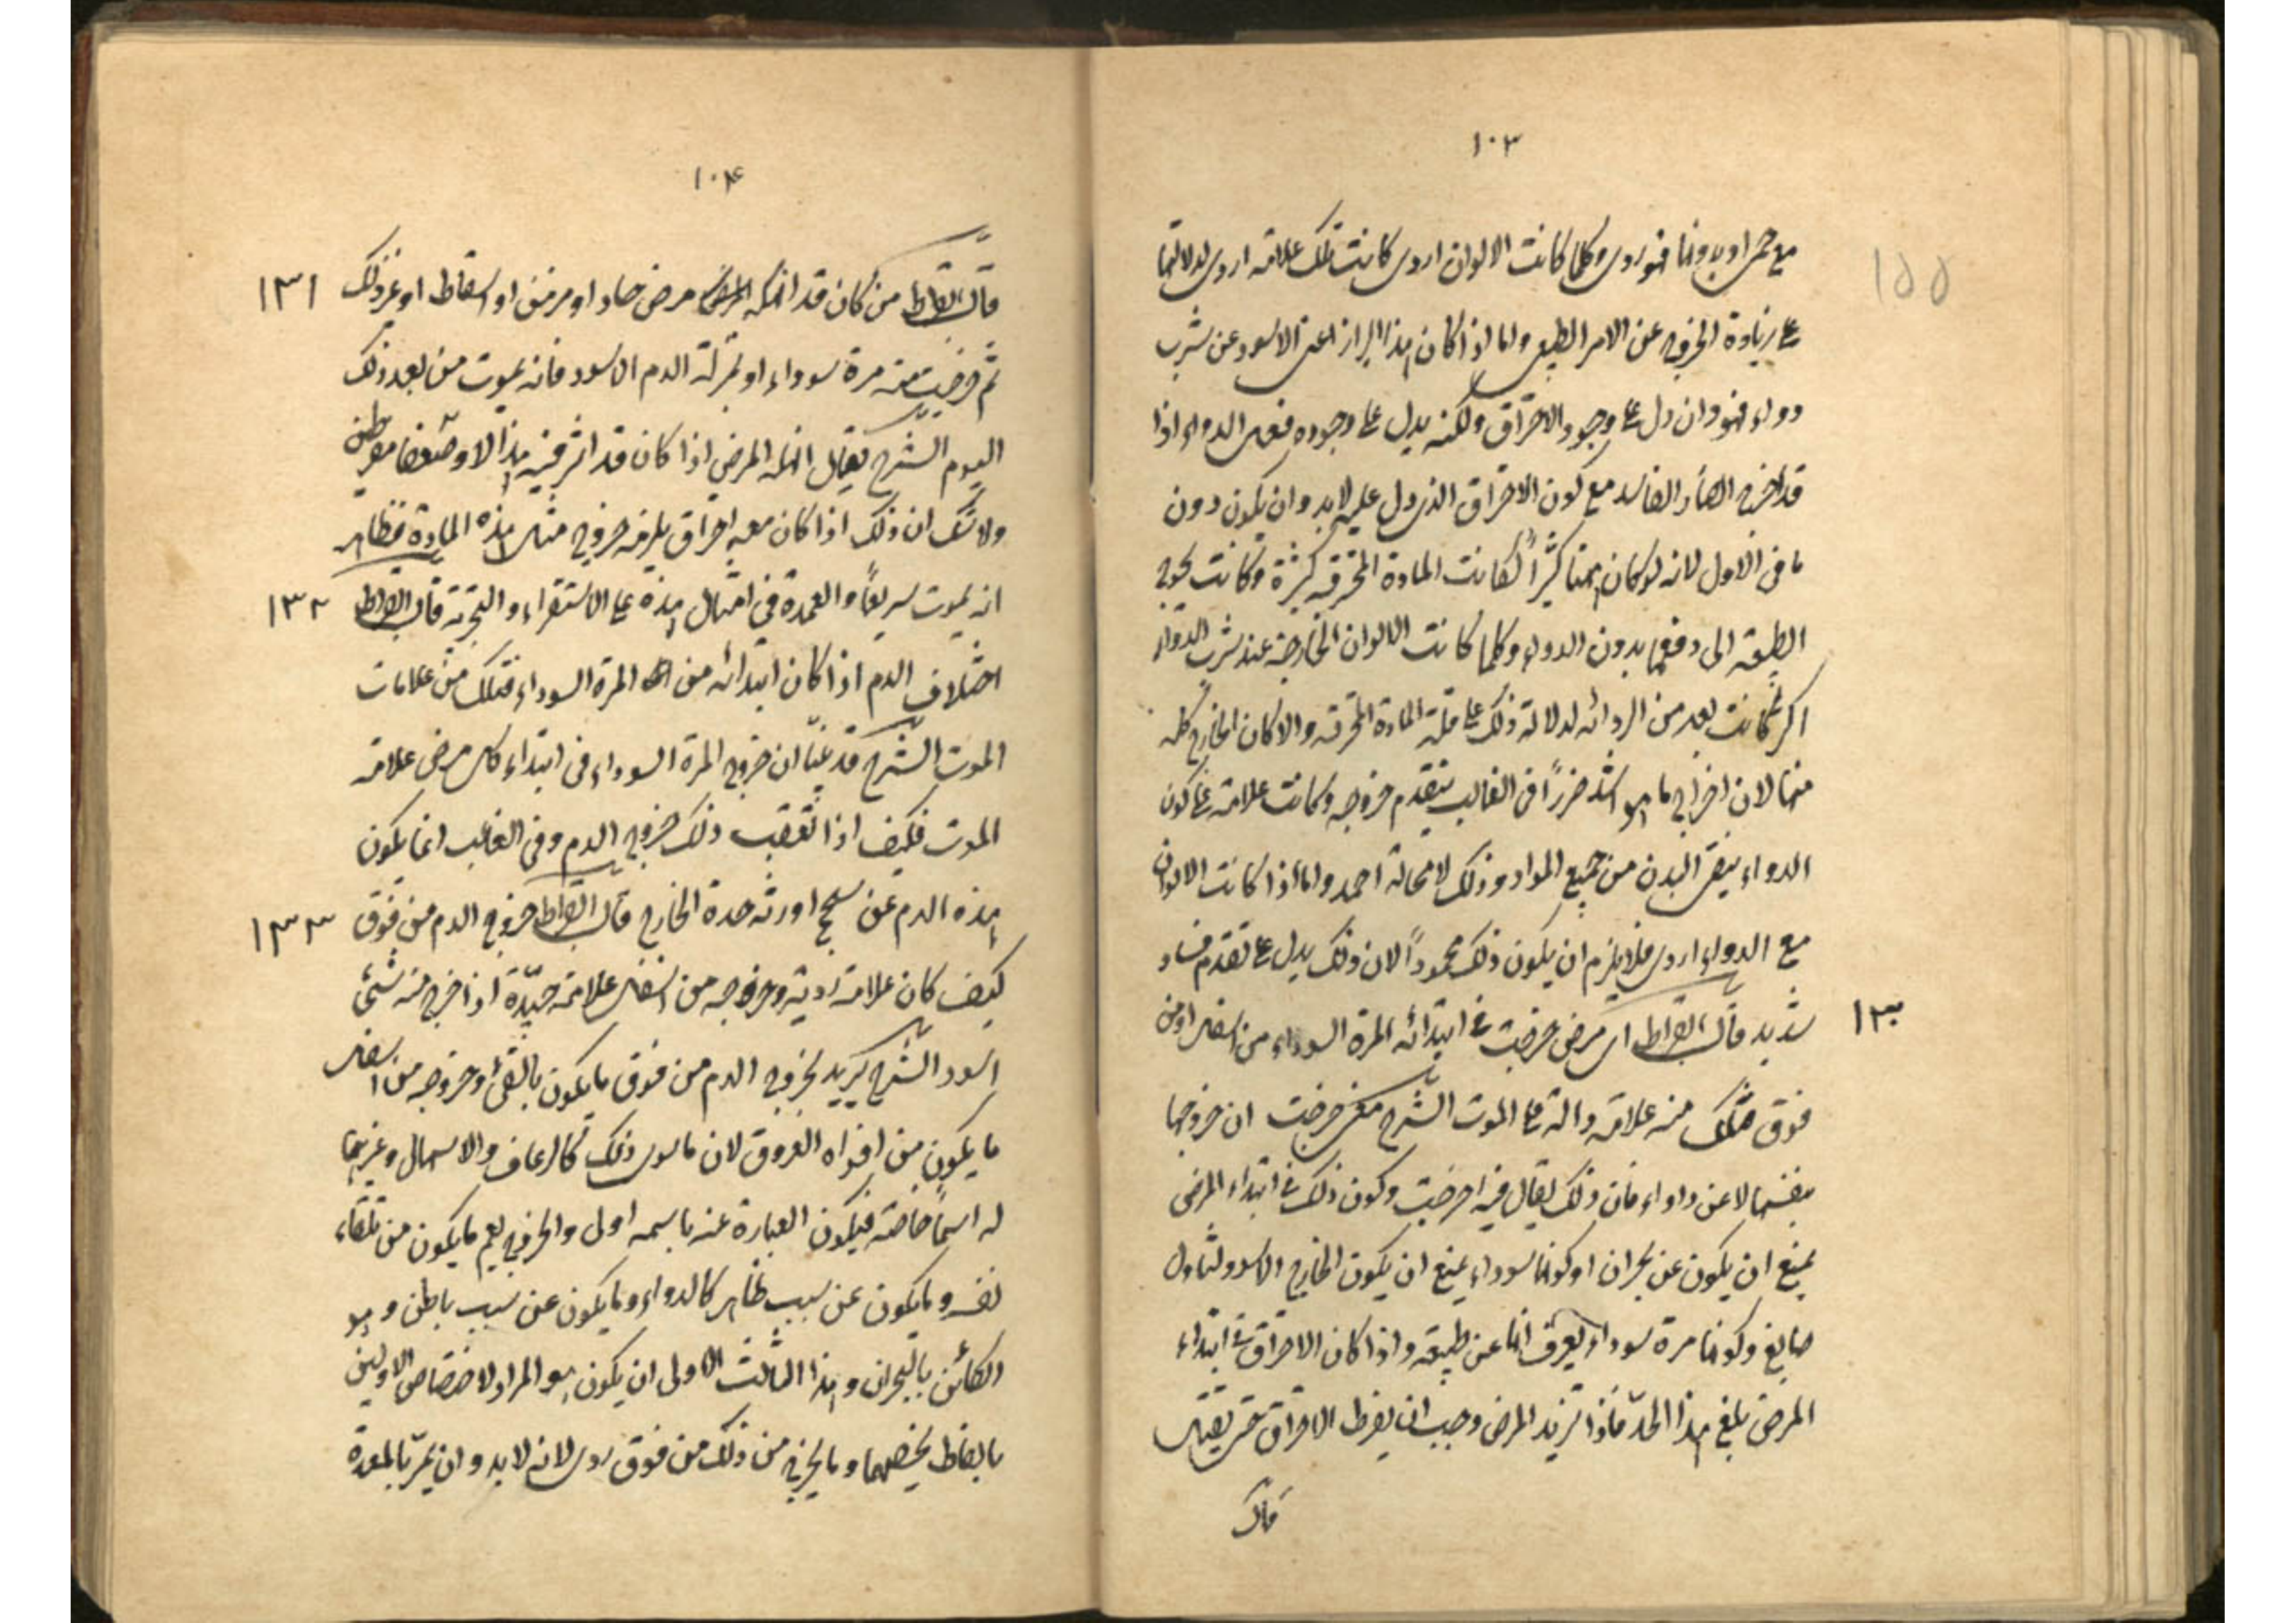 ١٠٣
مع حمى او بدونها فهو ردى وكلما كانت الالوان اردى كانت تلك علامته اردى لدلالتها
على زيادة الخروج عن الامر الطبيعى واما اذا كان هذا البراز اعنى الاسود عن شرب
دواء فهو وان دل على وجود الاحتراق ولكنه يدل على وجوده فعل الدواء اذا
قد اخرج الفاسد مع كون الاحتراق الذى دل عليه لابد وان يكون دون
ما فى الاول لانه لو كان كثيراً لكانت المادة المحترقه كثيرة وكانت تحوج
الطبيعه الى دفعها بدون الدواء وكلما كانت الالوان الخارجة عند شرب الدواء
اكثر كانت ابعد من الردائه لدلالة ذلك على قلة المادة المحترقه والا كان الخارج كله
منها لان اخراج ما هو اشد ضرراً فى الغالب يتقدم خروجه وكانت علامة على كون
الدواء ينقى البدن من جميع المواد وذلك لا محالة احمد واما اذا كانت الالوان
مع الدواء اردى فلا يلزم ان يكون ذلك محموداً لان ذلك يدل على تقدم فساد
شديد قال ابقراط اى مرض خرجت فى ابتدائه المرة السوداء من اسفل او من
١٣٠
فوق فتلك منه علامة دالة على الموت الشرح معنى خرجت ان خروجها
بنفسها لا عن دواء فان ذلك يقال فيه اخرجت وكون ذلك فى ابتداء المرض
يمنع ان يكون عن بحران او كونها سوداء يمنع ان يكون الخارج الاسود لتناول
صابغ وكونها مرة سوداء يعرف انها عن طبيعة واذا كان الاحتراق فى ابتداء
المرض بلغ هذا الحد فاذا تزيد المرض وجب ان يفرط الاحتراق حتى يقتل
قال
١٠٤
قال ابقراط من كان قد انهكه مرض حاد او مزمن او اسقاط او غير ذلك
١٣١
ثم خرجت منه مرة سوداء او بمنزلة الدم الاسود فانه يموت من بعد ذلك
اليوم الشرح يقال انهكه المرض اذا كان قد اثر فيه هذالا وضعفا مفرطين
ولا شك ان ذلك اذا كان معه احتراق يلزمه خروج مثل هذه المادة فظاهر
انه يموت سريعاً والعمدة فى امثال هذه على الاستقراء والتجربة قال ابقراط
١٣٢
اختلاف الدم اذا كان ابتدائه من المرة السوداء فتلك من علامات
الموت الشرح قد بيّنا ان خروج المرة السوداء فى ابتداء كل مرض علامة
الموت فكيف اذا تعقب ذلك خروج الدم وفى الغالب انما يكون
هذه الدم عن سحج اورثه حدة الخارج قال ابقراط خروج الدم من فوق
١٣٣
كيف كان علامة ردية وخروجه من اسفل علامة جيّدة اذا خرج منه شئ
اسود الشرح يريد بخروج الدم من فوق ما يكون بالقئ وخروجه من اسفل
ما يكون من افواه العروق لان ما سوى ذلك كالرعاف والاسهال وغيرهما
له اسماً خاصة فيكون العبارة عنه باسمه اولى والخروج يعم ما يكون من تلقاء
نفسه وما يكون عن سبب ظاهر كالدواء وما يكون عن سبب باطن وهو
الكائن بالبحران وهذا الثالث الاولى ان يكون هو المراد لاختصاص الاولين
بالفاظ يخصهما وما يخرج من ذلك من فوق ردى لانه لابد وان يمر بالمعدة